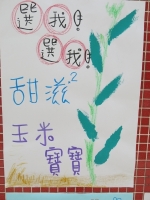 選我!
選我!
甜滋²
玉米
寶寶